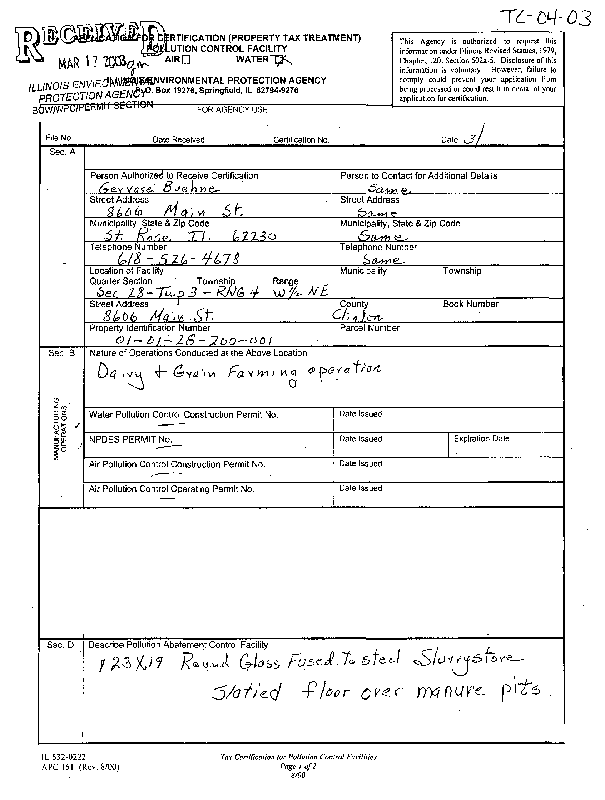 TC-04-03
RECEIVED
APPLICATION FOR CERTIFICATION (PROPERTY TAX TREATMENT)
POLLUTION CONTROL FACILITY
AIR WATER
MAR 17 2003
ILLINOIS ENVIRONMENTAL PROTECTION AGENCY
P.O. Box 19276, Springfield, IL 62794-9276
ILLINOIS ENVIRONMENTAL
PROTECTION AGENCY
BOW/WPC/PERMIT SECTION
This Agency is authorized to request this
information under Illinois Revised Statutes, 1979,
Chapter 120, Section 502a-5. Disclosure of this
information is voluntary. However, failure to
comply could prevent your application from
being processed or could result in denial of your
application for certification.
FOR AGENCY USE
File No. Date Received Certification No. Date 3/
Sec. A
Person Authorized to Receive Certification Person to Contact for Additional Details
Gervase Buehne Same
Street Address Street Address
8606 Main St. Same
Municipality, State & Zip Code Municipality, State & Zip Code
St. Rose, Il. 62230 Same
Telephone Number Telephone Number
618-526-4678 Same
Location of Facility Municipality Township
Quarter Section Township Range
Sec 28-Twp 3-RNG 4 W½ NE
Street Address County Book Number
8606 Main St. Clinton
Property Identification Number Parcel Number
01-01-28-200-001
Sec. B Nature of Operations Conducted at the Above Location
Dairy + Grain Farming operation
MANUFACTURING
OPERATIONS
Water Pollution Control Construction Permit No. Date Issued
NPDES PERMIT No. Date Issued Expiration Date
Air Pollution Control Construction Permit No. Date Issued
Air Pollution Control Operating Permit No. Date Issued
Sec. D Describe Pollution Abatement Control Facility
123X19 Round Glass Fused to steel Slurrystore
Slatted floor over manure pits.
IL 532-0222 Tax Certification for Pollution Control Facilities
APC 151 (Rev. 8/00) Page 1 of 2
8/00